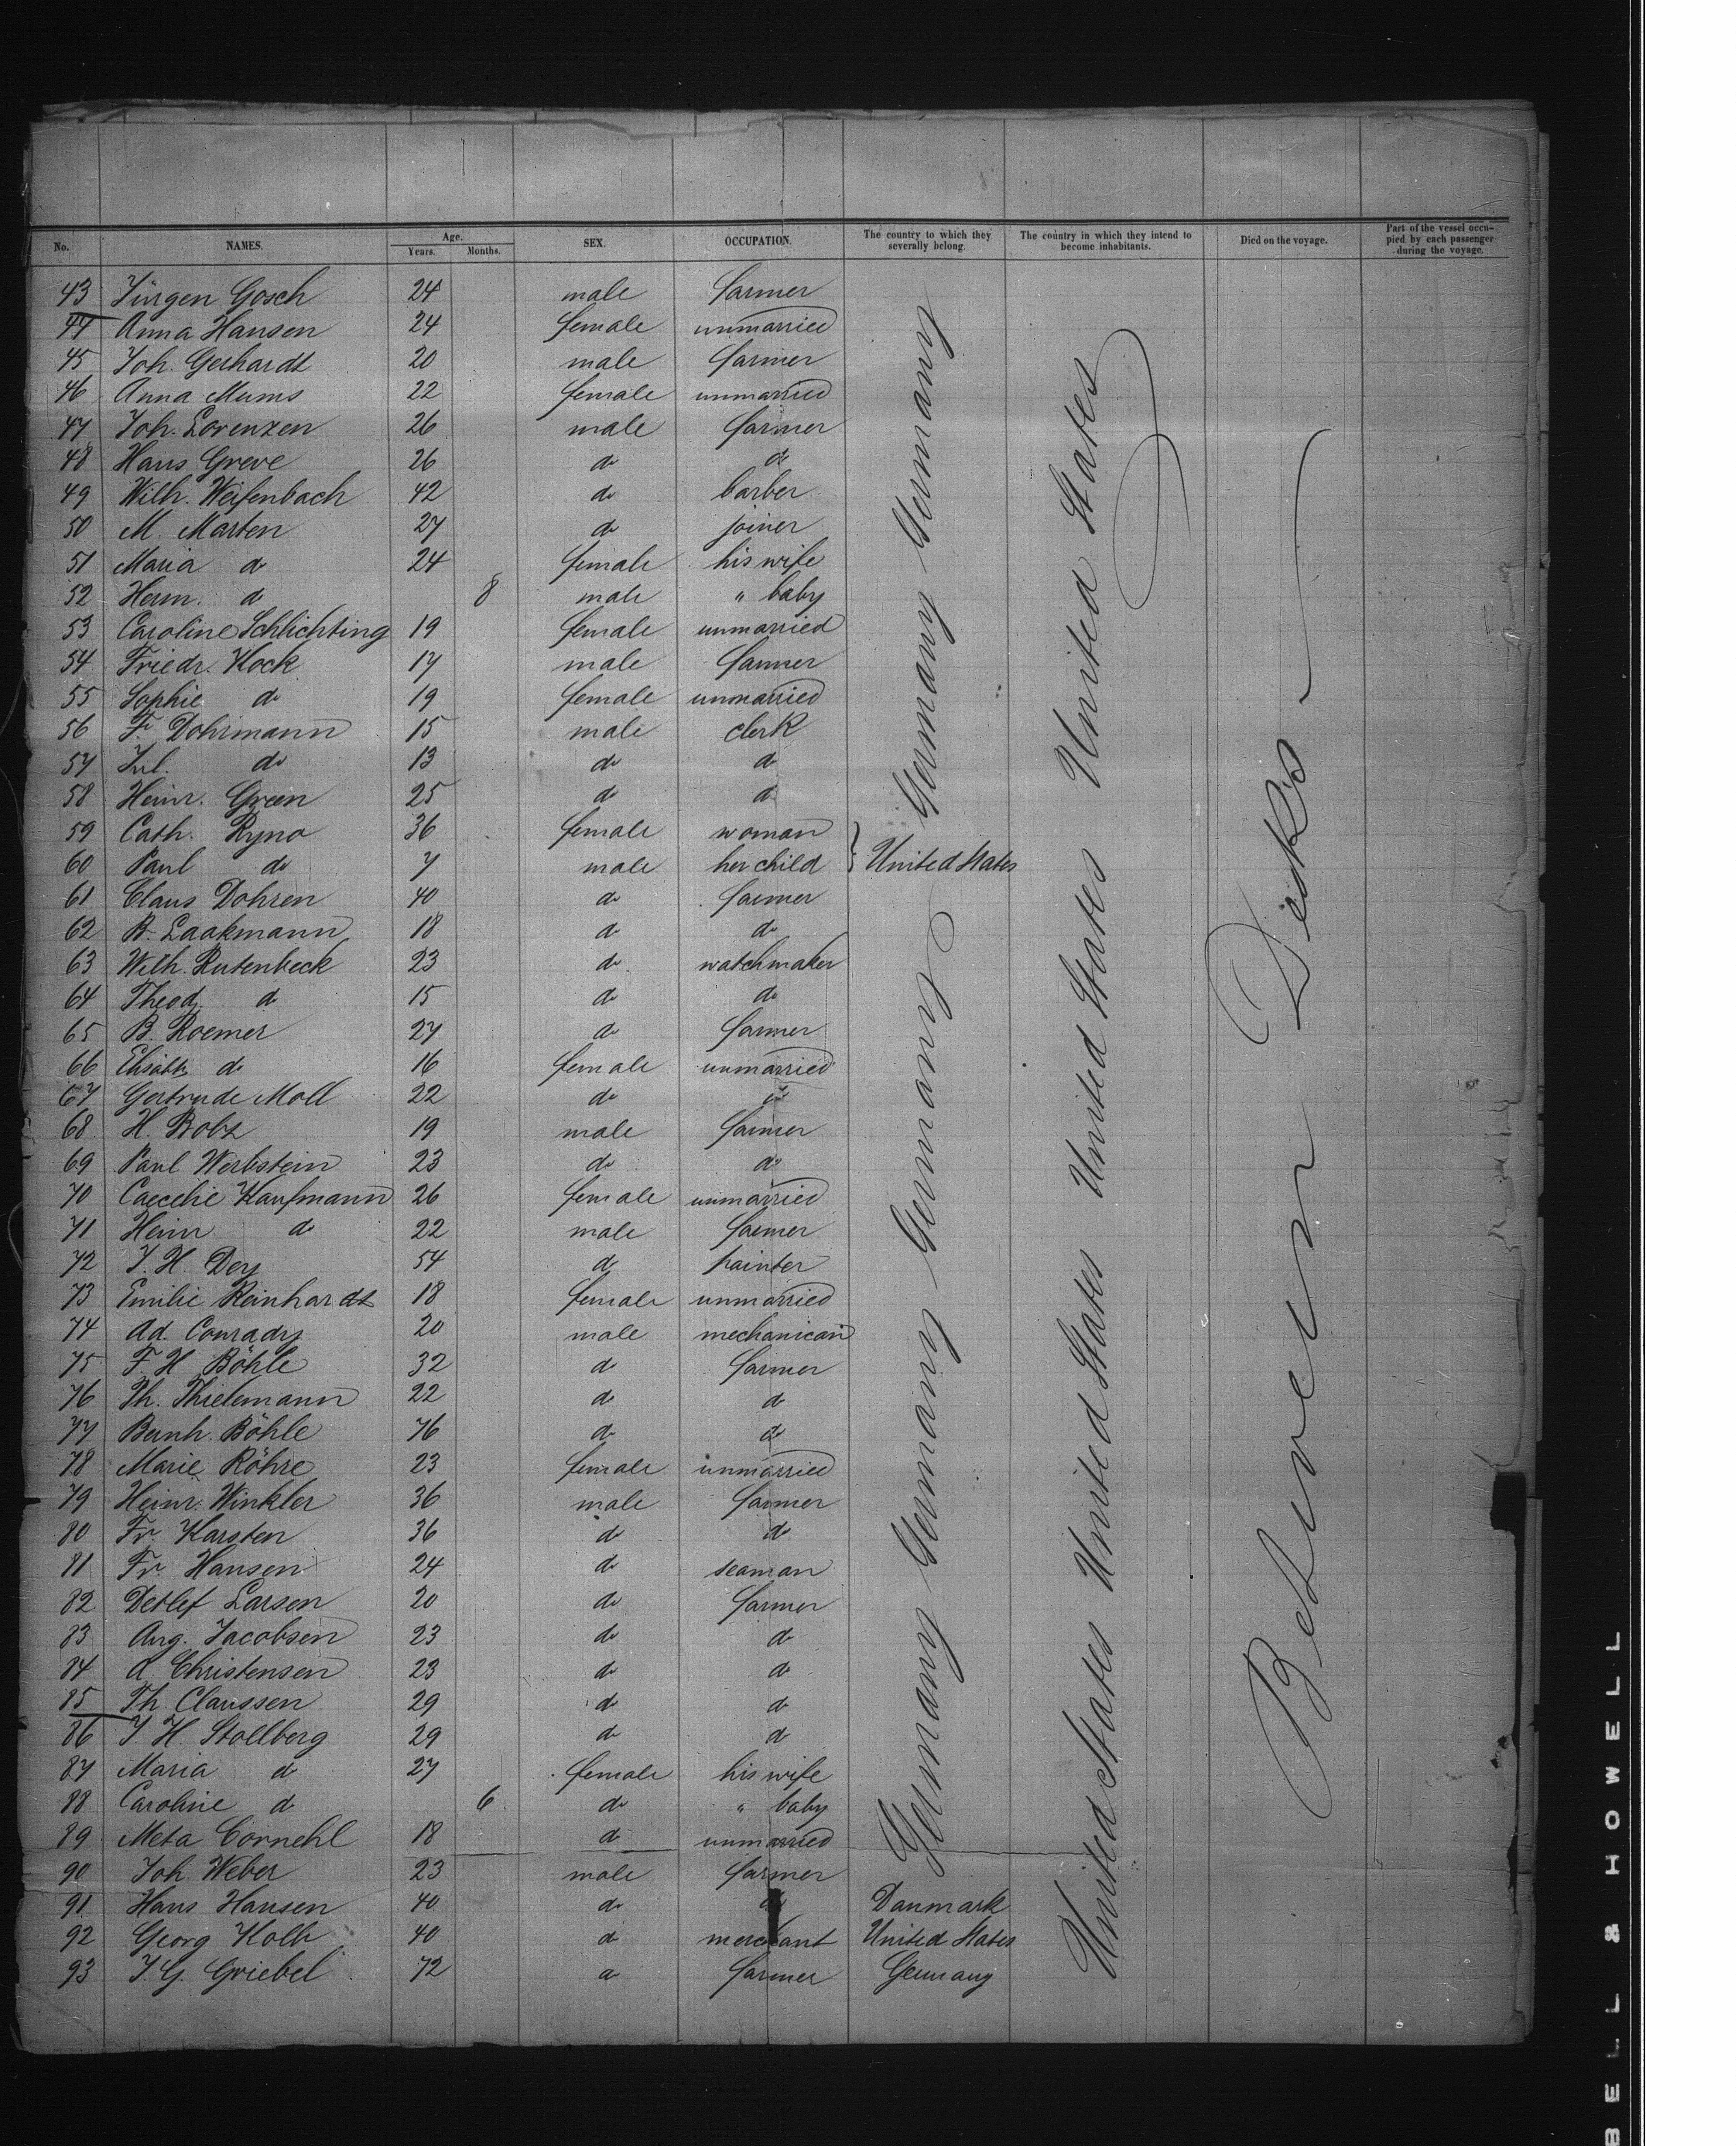 No. NAMES. Age. Years. Months. SEX. OCCUPATION. The country to which they severally belong. The country in which they intend to become inhabitants. Died on the voyage. Part of the vessel occupied by each passenger during the voyage.
43 Jürgen Gosch 24 male farmer
44 Anna Hansen 24 female unmarried
45 Joh. Gerhardt 20 male farmer
46 Anna Mums 22 female unmarried
47 Joh. Lorenzen 26 male farmer
48 Hans Greve 26 do do
49 Wilh. Weifenbach 42 do barber
50 M. Marten 27 do joiner
51 Maria do 24 female his wife
52 Herm. do 8 male " baby
53 Caroline Schlichting 19 female unmarried
54 Friedr. Kock 17 male farmer
55 Sophie do 19 female unmarried
56 F. Dohrmann 15 male clerk
57 Jul. do 13 do do
58 Heinr. Green 25 do do
59 Cath. Ryno 36 female woman
60 Paul do 7 male her child } United States
61 Claus Dohren 40 do farmer
62 B. Laakmann 18 do do
63 Wilh. Rutenbeck 23 do watchmaker
64 Theod. do 15 do do
65 B. Roemer 27 do farmer
66 Elisabth do 16 female unmarried
67 Gertrude Moll 22 do do
68 H. Bobz 19 male farmer
69 Paul Werbstein 23 do do
70 Caecelie Kaufmann 26 female unmarried
71 Heinr do 22 male farmer
72 J. H. Dey 54 do painter
73 Emilie Reinhardt 18 female unmarried
74 Ad. Conrady 20 male mechanican
75 F. H Böhle 32 do farmer
76 Th. Thielemann 22 do do
77 Bernh. Böhle 76 do do
78 Marie Röhre 23 female unmarried
79 Heinr. Winkler 36 male farmer
80 Fr. Karsten 36 do do
81 Fr. Hansen 24 do seaman
82 Detlef Larsen 20 do farmer
83 Aug. Jacobsen 23 do do
84 A. Christensen 23 do do
85 Th Claussen 29 do do
86 J H. Stollberg 29 do do
87 Maria do 27 female his wife
88 Caroline do 6 do " baby
89 Meta Cornehl 18 do unmarried
90 Joh. Weber 23 male farmer
91 Hans Hansen 40 do do Danmark
92 Georg Kolh 40 do merchant United States
93 J. G. Griebel 72 do farmer Germany
Germany Germany Germany Germany Germany Germany
United States United States United States United States United States
Between Decks
BELL & HOWELL